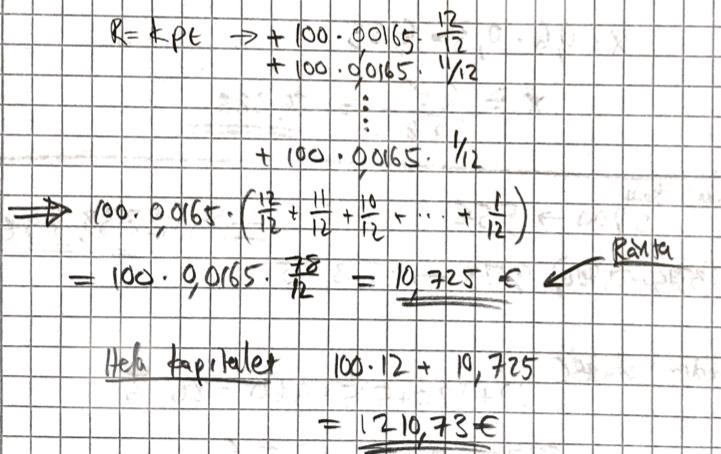 R = kpt → + 100 · 0,0165 · 12/12
+ 100 · 0,0165 · 11/12
⋮
+ 100 · 0,0165 · 1/12
⟹ 100 · 0,0165 · (12/12 + 11/12 + 10/12 + ... + 1/12)
Ränta
= 100 · 0,0165 · 78/12 = 10,725 €
Hela kapitalet 100 · 12 + 10,725
= 1210,73 €